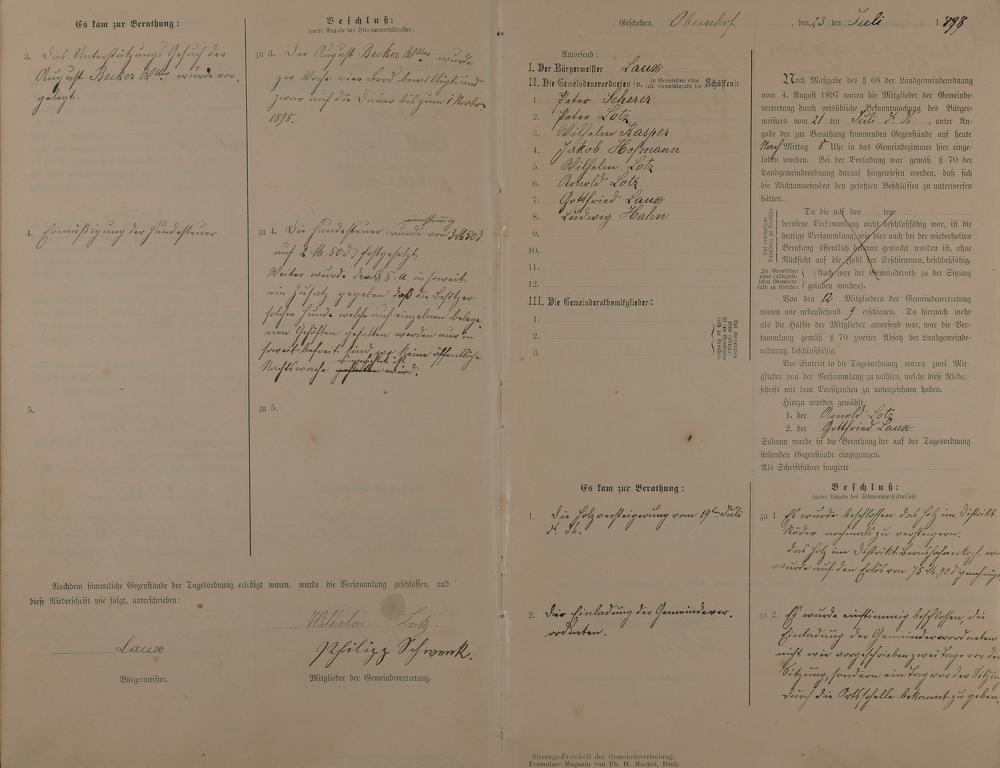 Es kam zur Berathung:
Beschluß:
(unter Angabe des Stimmenverhältnisses.)
3. Das Unterstützungs Gesuch der
August Becker Wtw wurde vor-
gelegt.
zu 3. Der August Becker Wtw wurde
pro Woche vier Brod bewilligt und
zwar auf die Dauer bis zum 1 Novbr
1898.
4. Ermäßigung der Hundesteuer
einstimmig
zu 4. Die Hundesteuer wurde von 3 M. 50 d
auf 2 M. 50 d festgesetzt.
Weiter wurde dem § 5. a in soweit
ein Zusatz gegeben daß die Besitzer
solcher Hunde welche auf einzelnen belege-
nen Gehöften gehalten werden nur in
soweit befreit sind, keine öffentliche
Nachtswache
5.
zu 5.
Nachdem sämmtliche Gegenstände der Tagesordnung erledigt waren, wurde die Versammlung geschlossen, und
diese Niederschrift wie folgt, unterschrieben:
Wilhelm Lotz
Laux
Philipp Schwenk.
Bürgermeister.
Mitglieder der Gemeindevertretung.
Geschehen, Obernhof, den 23 ten Juli 1898
Anwesend:
I. Der Bürgermeister Laux
II. Die Gemeindeverordneten (u. in Gemeinden ohne coll. Gemeinderath die Schöffen):
1. Peter Scherer
2. Peter Lotz
3. Wilhelm Kasper
4. Jakob Hofmann
5. Wilhelm Lotz
6. Arnold Lotz
7. Gottfried Laux
8. Ludwig Hahn
9.
10.
11.
12.
III. Die Gemeinderathsmitglieder:
1.
2.
3.
Nach Maßgabe des § 68 der Landgemeindeordnung
vom 4. August 1897 waren die Mitglieder der Gemeinde-
vertretung durch ortsübliche Bekanntmachung des Bürger-
meisters vom 21 ten Juli d. J., unter An-
gabe der zur Berathung kommenden Gegenstände auf heute
Nach Mittag 8 Uhr in das Gemeindezimmer hier einge-
laden worden. Bei der Vorladung war gemäß § 70 der
Landgemeindeordnung darauf hingewiesen worden, daß sich
die Nichtanwesenden den gefaßten Beschlüssen zu unterwerfen
hätten.
Da die auf den ten
berufene Versammlung nicht beschlußfähig war, ist die
heutige Versammlung, wie dies auch bei der wiederholten
Berufung öffentlich bekannt gemacht worden ist, ohne
Rücksicht auf die Zahl der Erschienenen, beschlußfähig.
(Auch war der Gemeinderath zu der Sitzung
geladen worden).
Von den 12 Mitgliedern der Gemeindevertretung
waren wie nebenstehend 9 erschienen. Da hiernach mehr
als die Hälfte der Mitglieder anwesend war, war die Ver-
sammlung gemäß § 70 zweiter Absatz der Landgemeinde-
ordnung beschlußfähig.
Vor Eintritt in die Tagesordnung waren zwei Mit-
glieder von der Versammlung zu wählen, welche diese Nieder-
schrift mit dem Vorsitzenden zu unterzeichnen haben.
Hierzu wurden gewählt:
1. der Arnold Lotz
2. der Gottfried Laux
Sodann wurde in die Berathung der auf der Tagesordnung
stehenden Gegenstände eingegangen.
Als Schriftführer fungirte
Es kam zur Berathung:
Beschluß:
(unter Angabe des Stimmenverhältnisses)
1. Die Holzversteigerung vom 19ten Juli
d. Js.
zu 1. Es wurde beschlossen das Holz im Distrikt
Röder nochmals zu versteigern.
Das Holz im Distrikt
wurde auf den Erlös von 75 M. 90 d genehmigt
2. Die Einladung der Gemeindever-
ordneten.
zu 2. Es wurde einstimmig beschlossen, die
Einladung der Gemeindeverordneten
nicht wie vorgeschrieben zwei Tage vor der
Sitzung, sondern ein Tag vor der Sitzung
durch die Ortsschelle bekannt zu geben,
Sitzungs-Protokoll der Gemeindevertretung.
Formular-Magazin von Ph. H. Meckel, Diez.